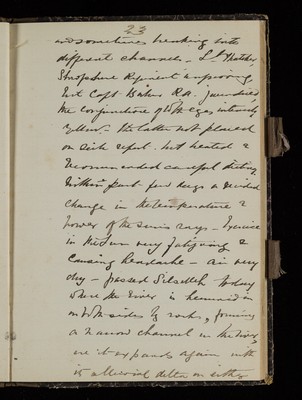 23
and sometimes breaking into
different channels - Lt Thatcher
Shropshire Regiment improving,
but Capt Baker R.A. jaundiced,
the conjunctivæ of both eyes intensely
yellow - the latter not placed
on sick report. but treated &
recommended careful dieting,
Within past few days a decided
change in the temperature &
power of the sun's rays -
in the sun very fatiguing &
causing headache - air very
dry - passed Silsileh today
where the river is hemmed in
on both sides by rocks, forming
a narrow channel in the river,
expands again with
its alluvial delta on either